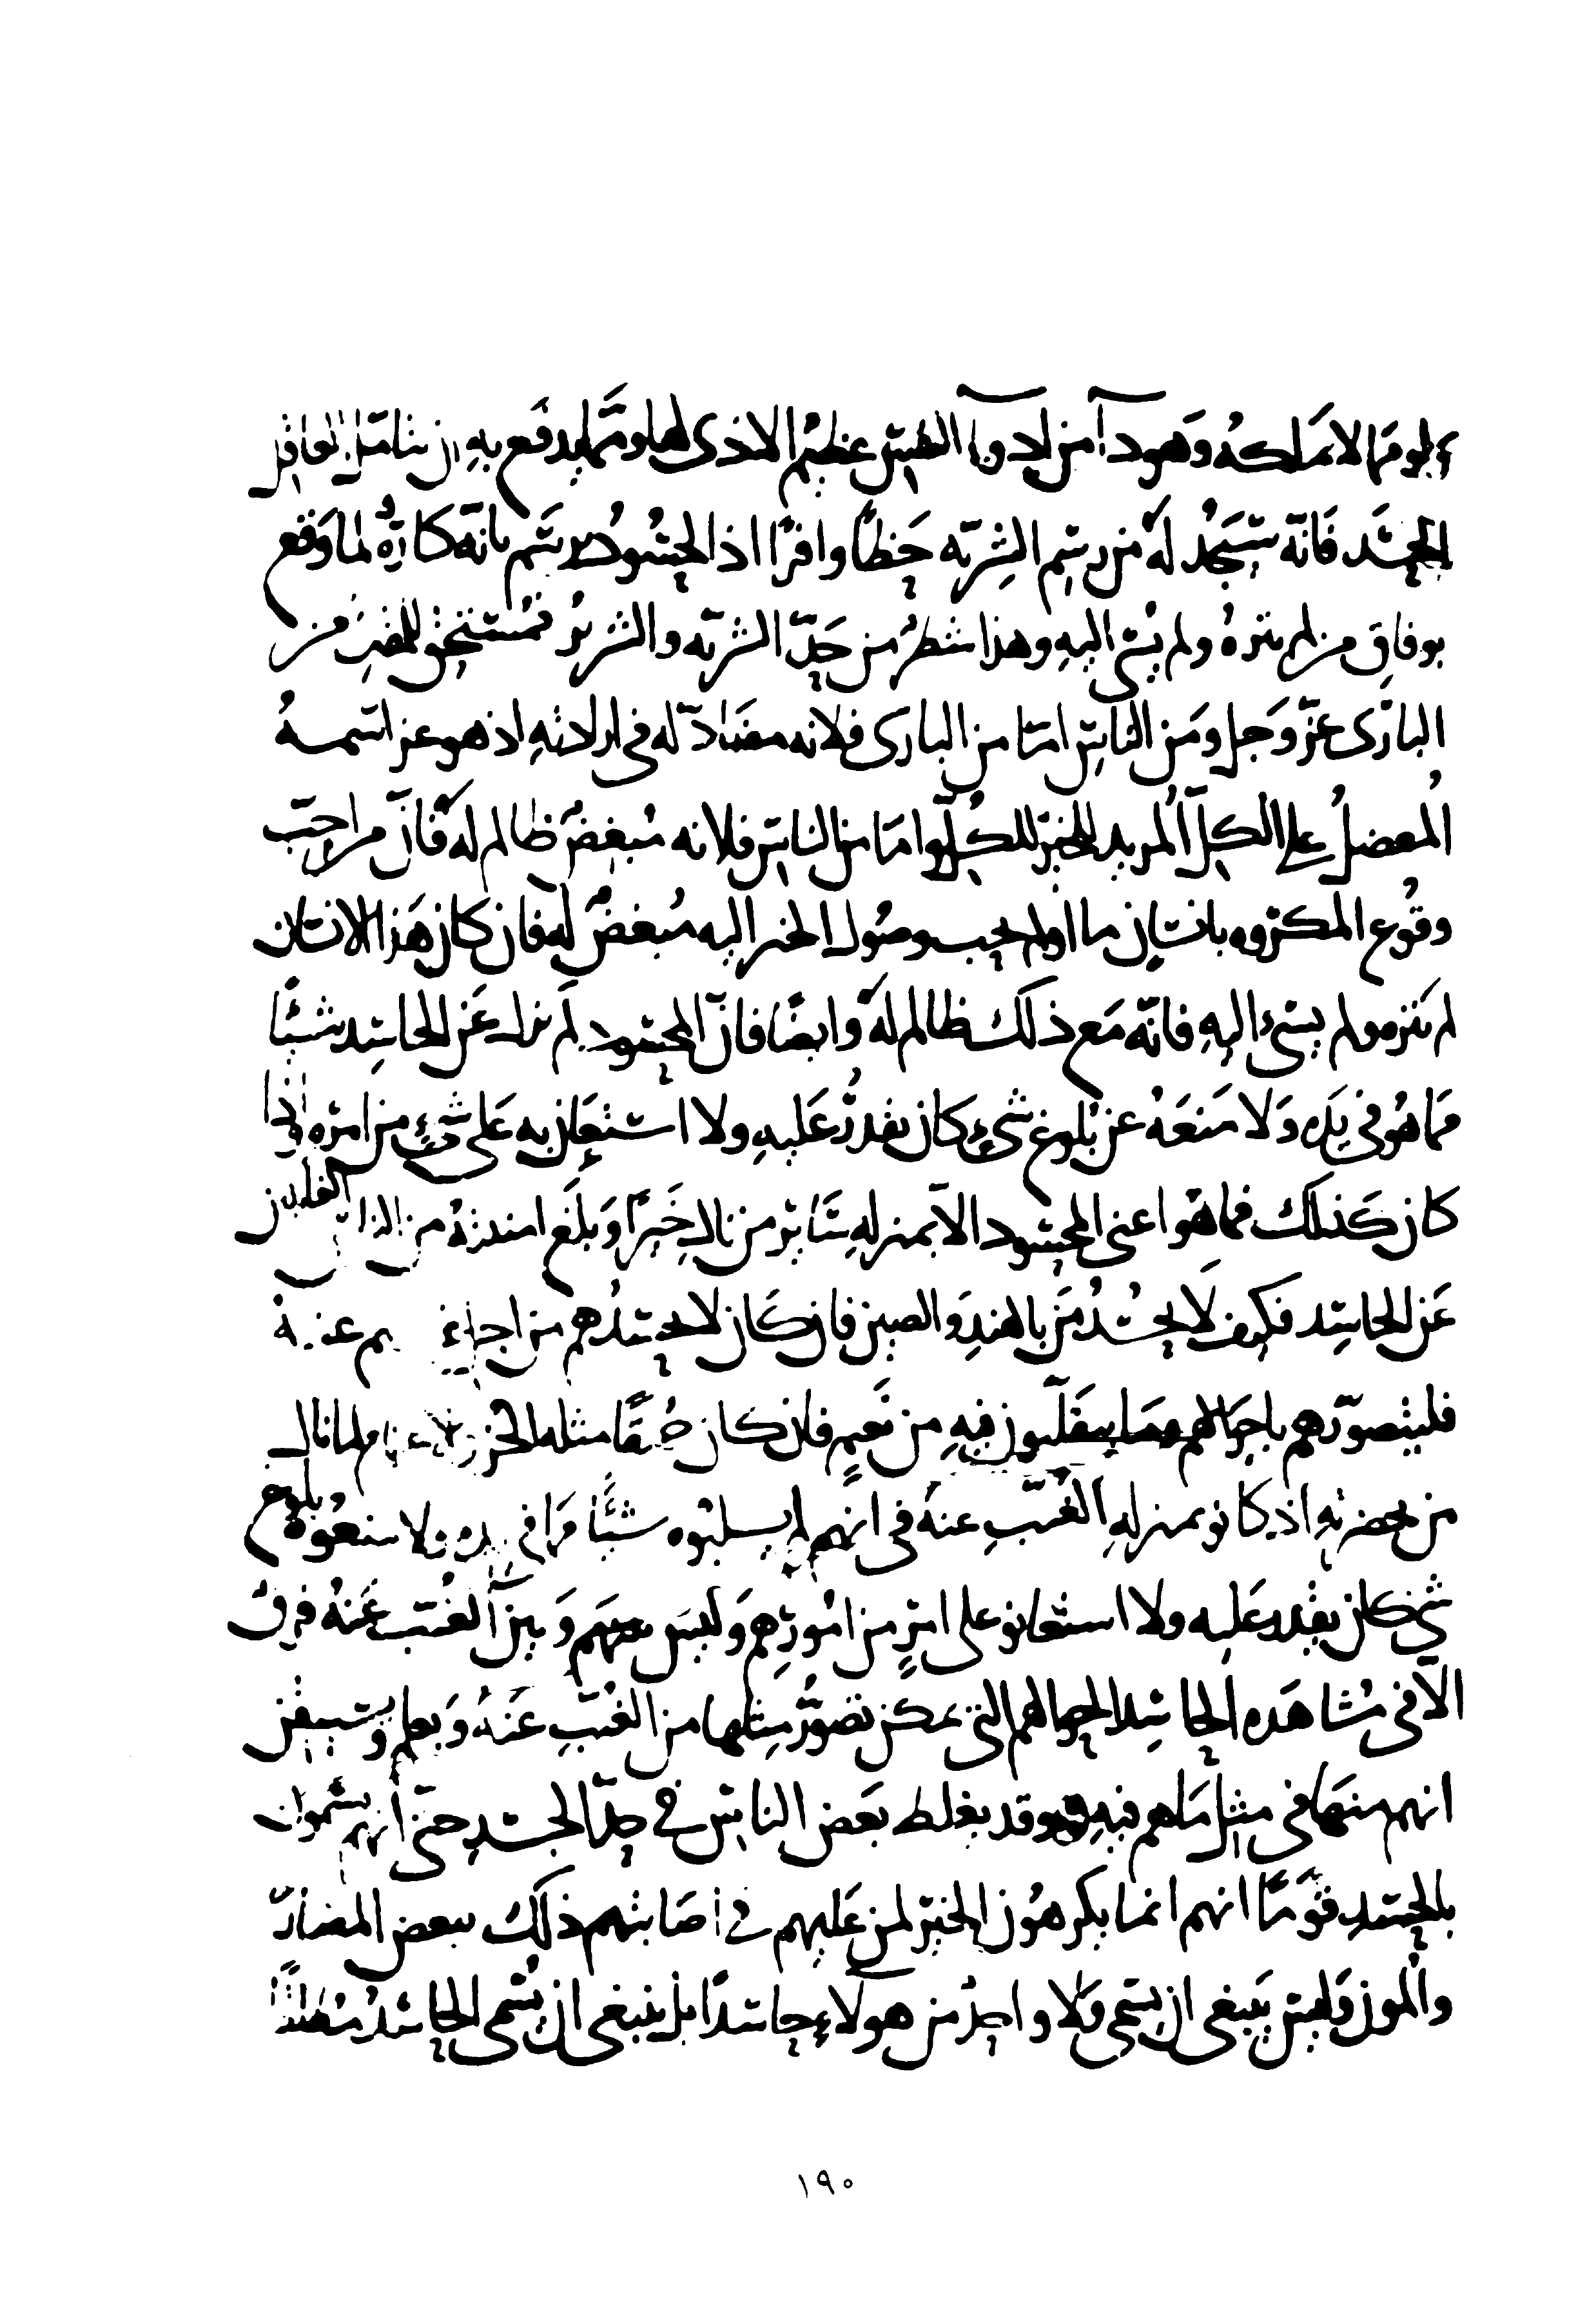 مما لا يملكه وهو داء من ادواء النفس عظيم الاذى لها ومما يدفع به ان يتامل العاقل
الحسد فانه سيجد له من رسم الشريه حظا وافرا اذ الحسود يرسم بانه كاره لما وقع
بوفاق من لم يتره ولم يسئ اليه وهذا شطر من حد الشريه والشرير فمستحق للمقت من
البارى عز وجل ومن الناس اما من البارى فلانه مضاد له فى ارادته اذ هو عز اسمه
المفضل على الكل المريد الخير للكل واما من الناس فلانه مبغض ظالم له فان من احب
وقوع المكروه بانسان ما او لم يحب وصول الخير اليه مبغض له فان كان هذا الانسان
لم يتره ولم يسئ اليه فانه مع ذلك ظالم له وايضا فان المحسود لم يزل عن الحاسد شيئا
مما هو فى يده ولا منعه عن بلوغ شئ كان يقدر عليه ولا استعان به على شئ من امره فاذا
كان كذلك فما هو اعنى المحسود الا بمنزله سائر من نال خيرا وبلغ امنيته من الناس الغايبين
عن الحاسد فكيف لا يحسد من بالهند والصين فان كان لا يحسدهم من اجل غيبتهم عنه
فليتصورهم باحوالهم وما يتقلبون فيه من نعيم فان كان حمقا مثله الحزن لما نال
من بحضرته اذ كانو بمنزله الغيب عنه فى انهم لم يسلبوه شيئا مما فى يده ولا منعوه بلوغ
شئ كان يقدر عليه ولا استعانو على امر من امورهم وليس بينهم وبين الغيب عنه فرق
الا فى مشاهده الحاسد لاحوالهم التى يمكن تصور مثلها من الغيب عنه ويعلم ويستيقن
انهم منها فى مثل ما هم فيه وقد يغلط بعض الناس فى حد الحسد حتى انهم يسمون
بالحسد قوما انهم انما يكرهون الخير لمن عليهم فى اصابتهم ذلك بعض المضار
والمون وليس ينبغى ان يسمى ولا واحد من هولاء حاسدا بل ينبغى ان يسمى الحاسد مطلقا
١٩٠